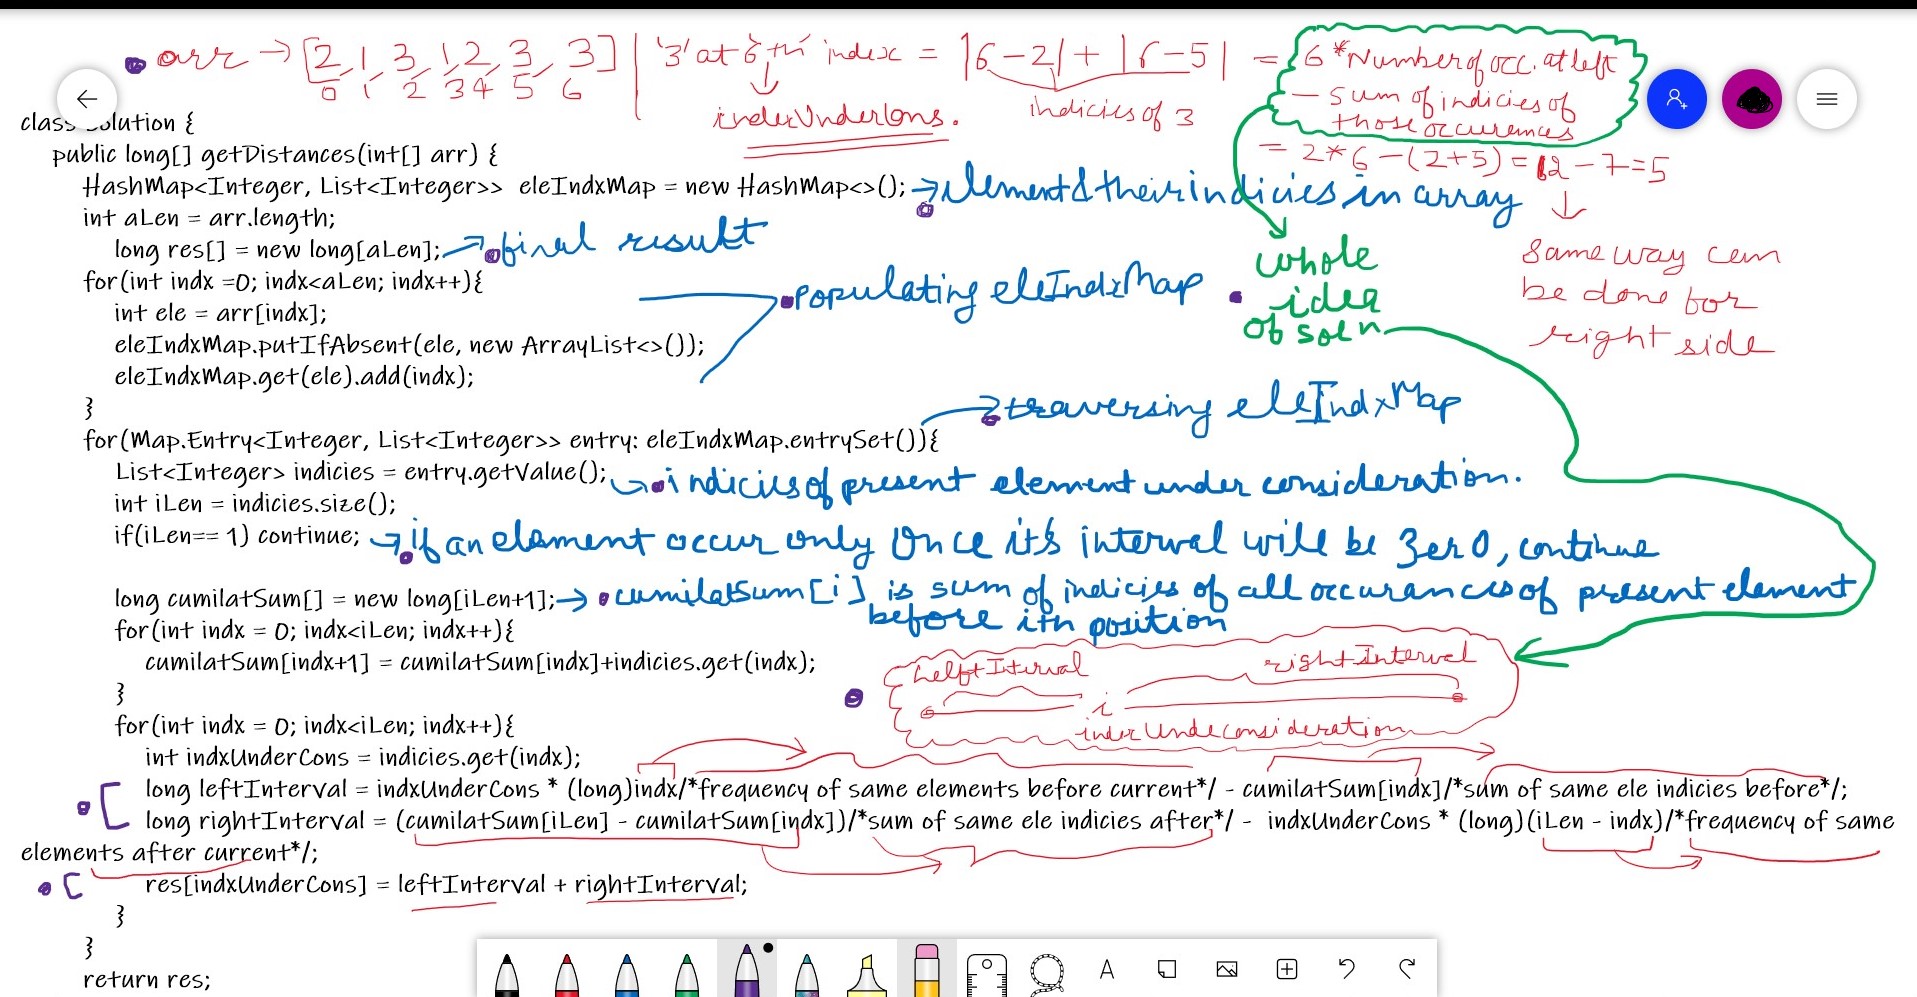 arr → [2, 1, 3, 1, 2, 3, 3] | '3' at 6th index = |6-2| + |6-5| = 6 * Number of occ. at left
0 1 2 3 4 5 6
indexUnderCons.
indicies of 3
- sum of indicies of
those occurences
= 2*6 - (2+5) = 12 - 7 = 5
same way can
be done for
right side
whole
idea
of soln
class Solution {
public long[] getDistances(int[] arr) {
HashMap<Integer, List<Integer>> eleIndxMap = new HashMap<>(); → element & their indicies in array
int aLen = arr.length;
long res[] = new long[aLen]; → final result
for(int indx =0; indx<aLen; indx++){
populating eleIndxMap
int ele = arr[indx];
eleIndxMap.putIfAbsent(ele, new ArrayList<>());
eleIndxMap.get(ele).add(indx);
}
traversing eleIndxMap
for(Map.Entry<Integer, List<Integer>> entry: eleIndxMap.entrySet()){
List<Integer> indicies = entry.getValue(); → indicies of present element under consideration.
int iLen = indicies.size();
if(iLen== 1) continue; → if an element occur only Once it's interval will be zero, continue
long cumilatSum[] = new long[iLen+1]; → cumilatSum[i] is sum of indicies of all occurances of present element
before ith position
for(int indx = 0; indx<iLen; indx++){
cumilatSum[indx+1] = cumilatSum[indx]+indicies.get(indx);
}
rightInterval
i
for(int indx = 0; indx<iLen; indx++){
int indxUnderCons = indicies.get(indx);
long leftInterval = indxUnderCons * (long)indx/*frequency of same elements before current*/ - cumilatSum[indx]/*sum of same ele indicies before*/;
long rightInterval = (cumilatSum[iLen] - cumilatSum[indx])/*sum of same ele indicies after*/ - indxUnderCons * (long)(iLen - indx)/*frequency of same
elements after current*/;
res[indxUnderCons] = leftInterval + rightInterval;
}
}
return res;
A